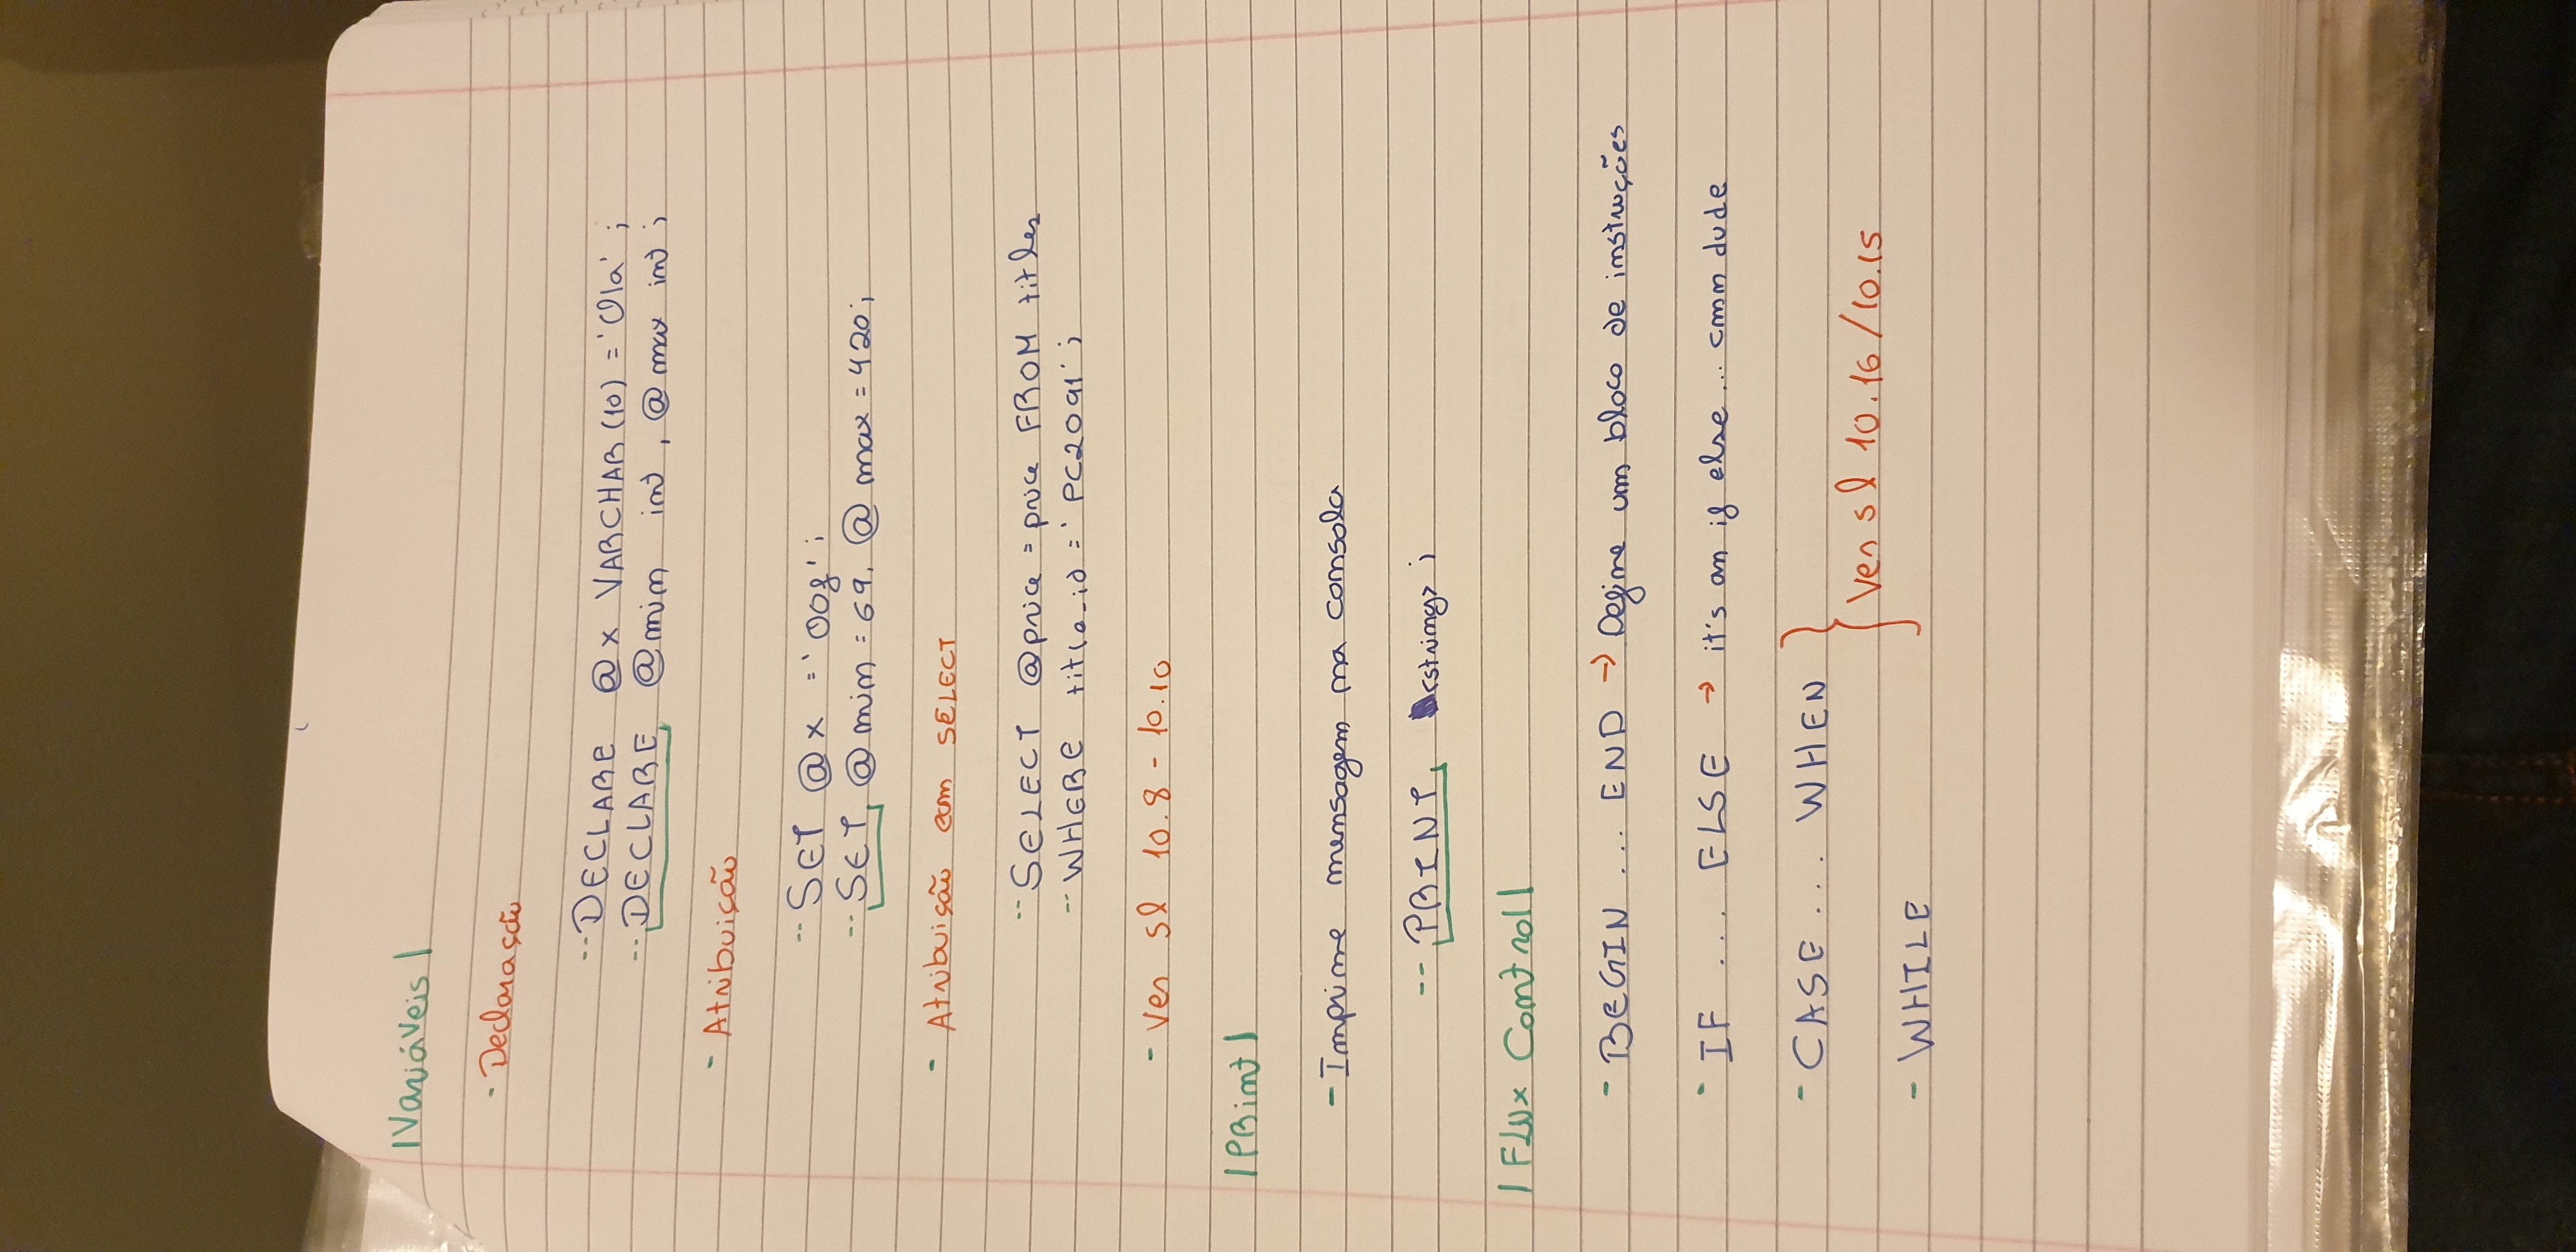 |Variáveis|
- Declaração
-- DECLARE @x VARCHAR(10) = 'Ola' ;
-- DECLARE @min int , @max int ;
- Atribuição
-- SET @x = 'Oof' ;
-- SET @min = 69, @max = 420;
- Atribuição com SELECT
-- SELECT @price = price FROM titles
-- WHERE title_id = 'PC2091' ;
- Ver sl 10.8 - 10.10
|PRint|
- Imprime mensagem na consola
-- PRINT <string> ;
|Flux Control|
- BEGIN ... END → Define um bloco de instruções
- IF ... ELSE → it's an if else... cmm dude
- CASE ... WHEN
Ver sl 10.16/10.15
- WHILE